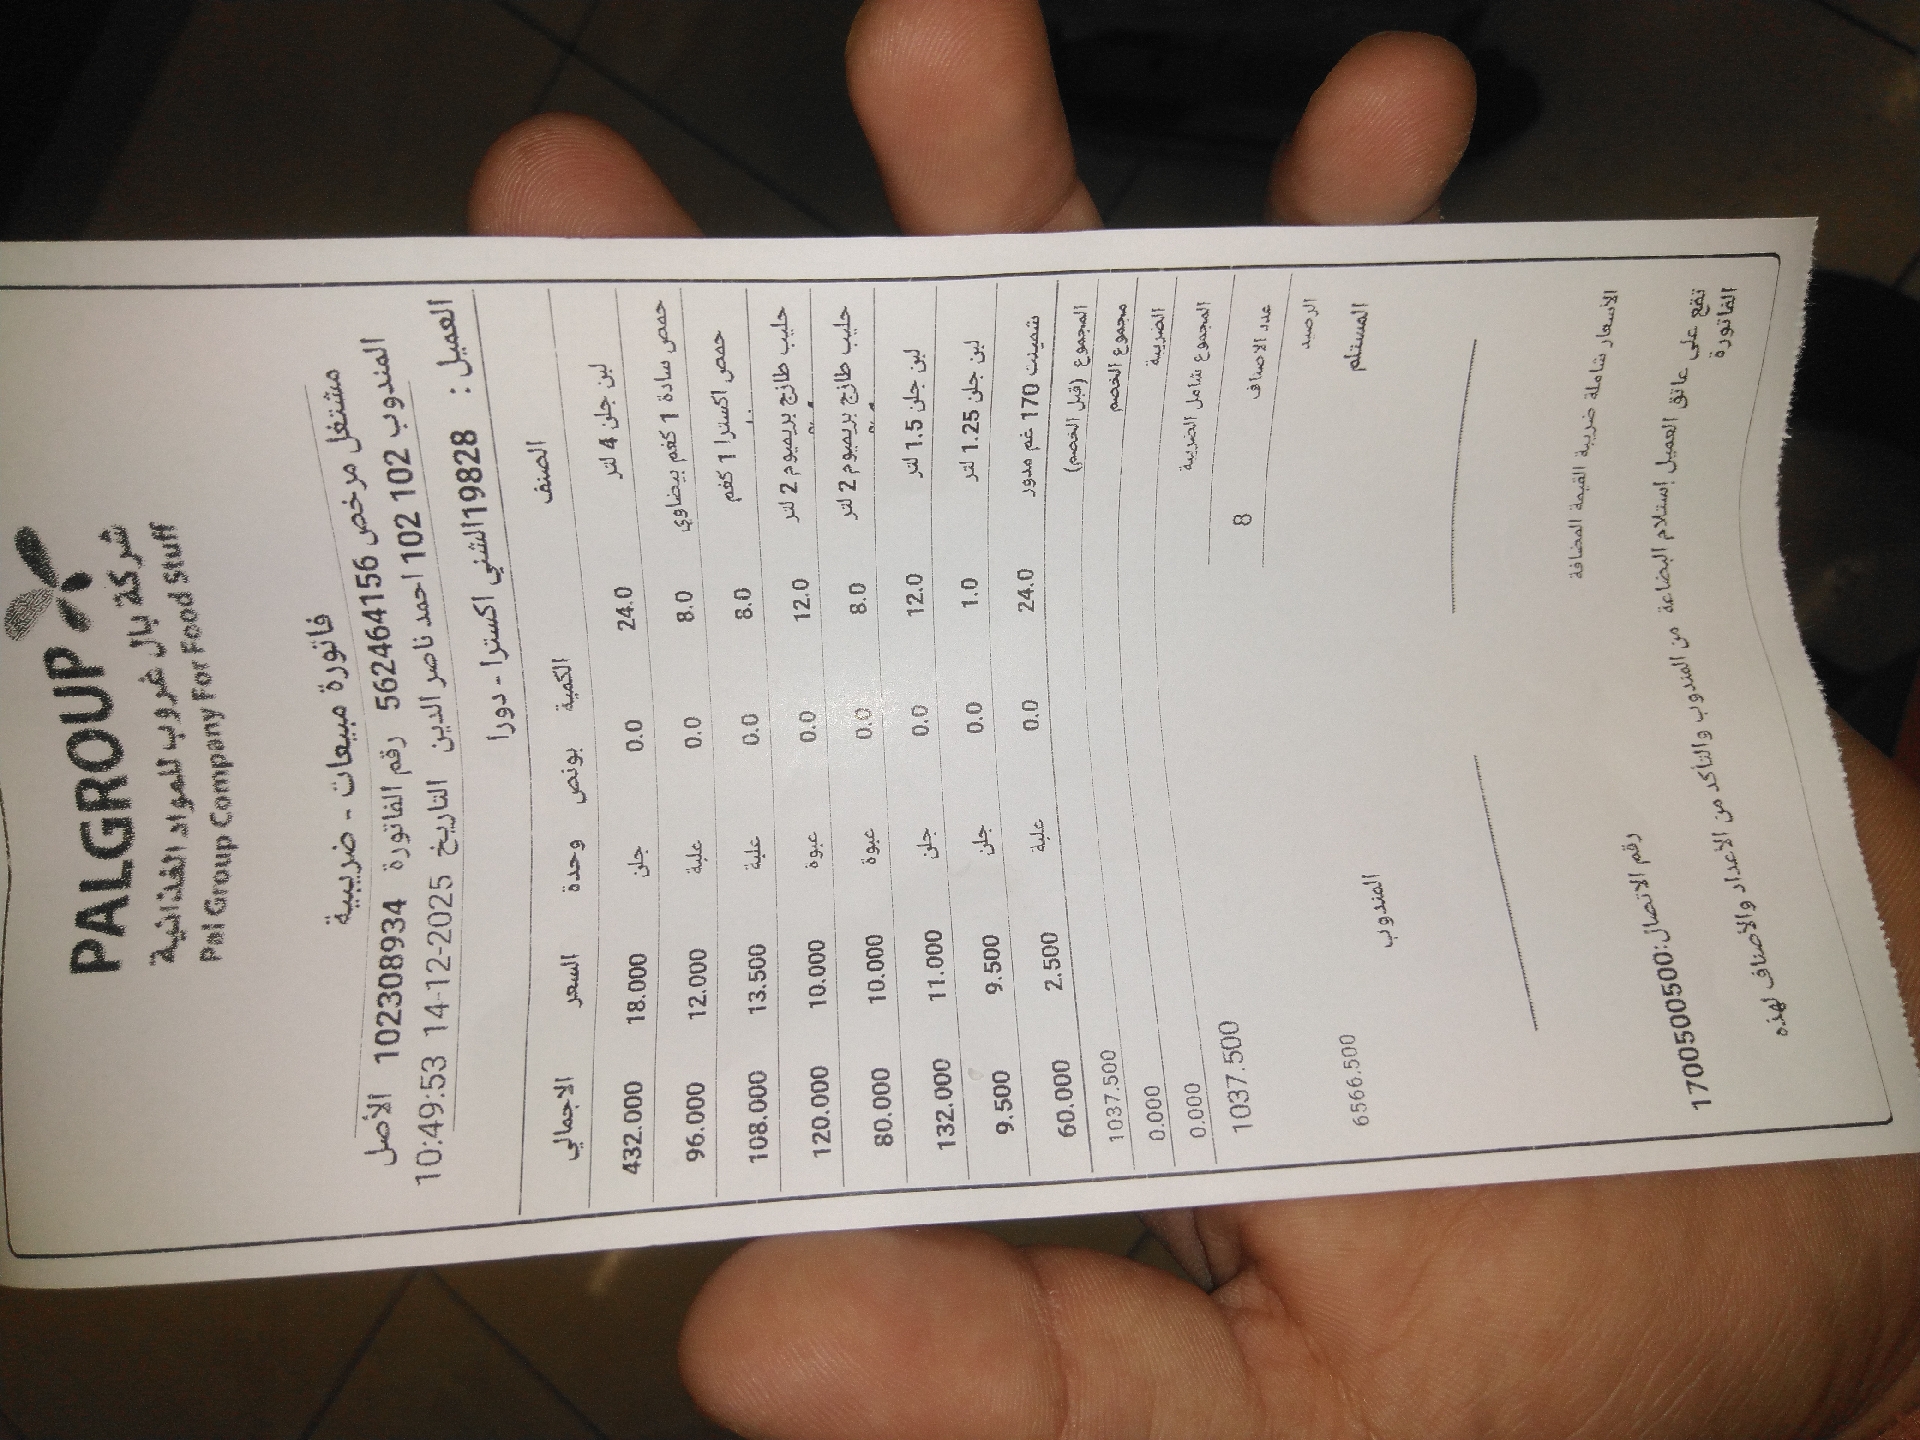 PALGROUP
شركة بال غروب للمواد الغذائية
Pal Group Company For Food Stuff
فاتورة مبيعات - ضريبية
مشتغل مرخص 562464156 رقم الفاتورة 102308934 الأصل
المندوب 102 102 احمد ناصر الدين التاريخ 2025-12-14 10:49:53
العميل : 19828الشني اكسترا - دورا
الصنف الكمية بونص وحدة السعر الاجمالي
لبن جلن 4 لتر 24.0 0.0 جلن 18.000 432.000
حمص سادة 1 كغم بيضاوي 8.0 0.0 علبة 12.000 96.000
حمص اكسترا 1 كغم 8.0 0.0 علبة 13.500 108.000
حليب طازج بريميوم 2 لتر 12.0 0.0 عبوة 10.000 120.000
حليب طازج بريميوم 2 لتر 8.0 0.0 عبوة 10.000 80.000
لبن جلن 1.5 لتر 12.0 0.0 جلن 11.000 132.000
لبن جلن 1.25 لتر 1.0 0.0 جلن 9.500 9.500
شمينت 170 غم مدور 24.0 0.0 علبة 2.500 60.000
المجموع (قبل الخصم) 1037.500
مجموع الخصم 0.000
الضريبة 0.000
المجموع شامل الضريبة 1037.500
عدد الاصناف 8
الرصيد 6566.500
المستلم المندوب
الأسعار شاملة ضريبة القيمة المضافة
رقم الاتصال:1700500500
تقع على عاتق العميل إستلام البضاعة من المندوب والتأكد من الأعداد والأصناف لهذه
الفاتورة